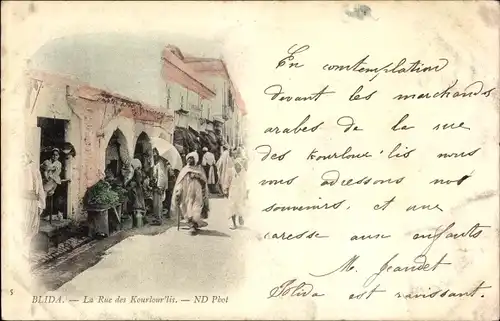 En contemplation
devant les marchands
arabes de la rue
des Kourlour'lis nous
vous adressons nos
souvenirs. et une
caresse aux enfants
M. Jeandet
Blida est ravissant.
5
BLIDA. — La Rue des Kourlour'lis. — ND Phot